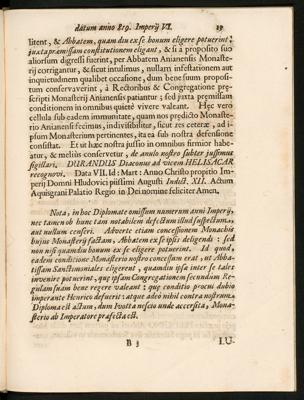 datum anno 819. Imperij VI. 19
litent, & Abbatem, quam diu ex se bonum eligere potuerint;
juxta præmissam constitutionem eligant, & si a proposito suo
aliorsum digressi fuerint, per Abbatem Anianensis Monaste-
rij corrigantur, & sicut intulimus, nullam infestationem aut
inquietudinem qualibet occasione, dum bene suum proposi-
tum conservaverint, à Rectoribus & Congregatione præ-
scripti Monasterij Anianensis patiantur; sed juxta præmissam
conditionem in omnibus quietè vivere valeant. Hęc verò
cellula sub eadem immunitate, quam nos prædicto Monaste-
rio Anianensi fecimus, indivisibiliter, sicut res ceteræ, ad i-
psum Monasterium pertinentes, ita ea sub nostra defensione
consistat. Et ut hæc nostra jussio in omnibus firmior habe-
atur, & meliùs conservetur, de anulo nostro subter jussimus
sigillari. DURANDUS Diaconus ad vicem HELISACAR
recognovi. Data VII. Id: Mart: Anno Christo propitio Im-
perij Domni Hludovici piissimi Augusti Indict. XII. Actum
Aquisgrani Palatio Regio in Dei nomine feliciter Amen.
Nota, in hoc Diplomate omissum numerum anni Imperij,
nec tamen ob hunc tam notabilem defectum illud suspectum,
aut nullum censeri. Adverte etiam concessionem Monachis
hujus Monasterij factam, Abbatem ex se ipsis deligendi: sed
non nisi quamdiu bonum ex se eligere potuerint. Id quod,
eadem conditione Monasterio nostro concessum erat, ut Abba-
tissam Sanctimoniales eligerent, quamdiu ipsæ inter se talem
invenire potuerint, quę ipsam Congregationem secundum Re-
gulam suam bene regere valeant: quę conditio procul dubio
imperante Henrico defuerit: atque adeò nihil contra nostrum
Diploma est actum, dum Ivotta nescio unde accersita, Mona-
sterio ab Imperatore præfecta est.
B 3 LU-